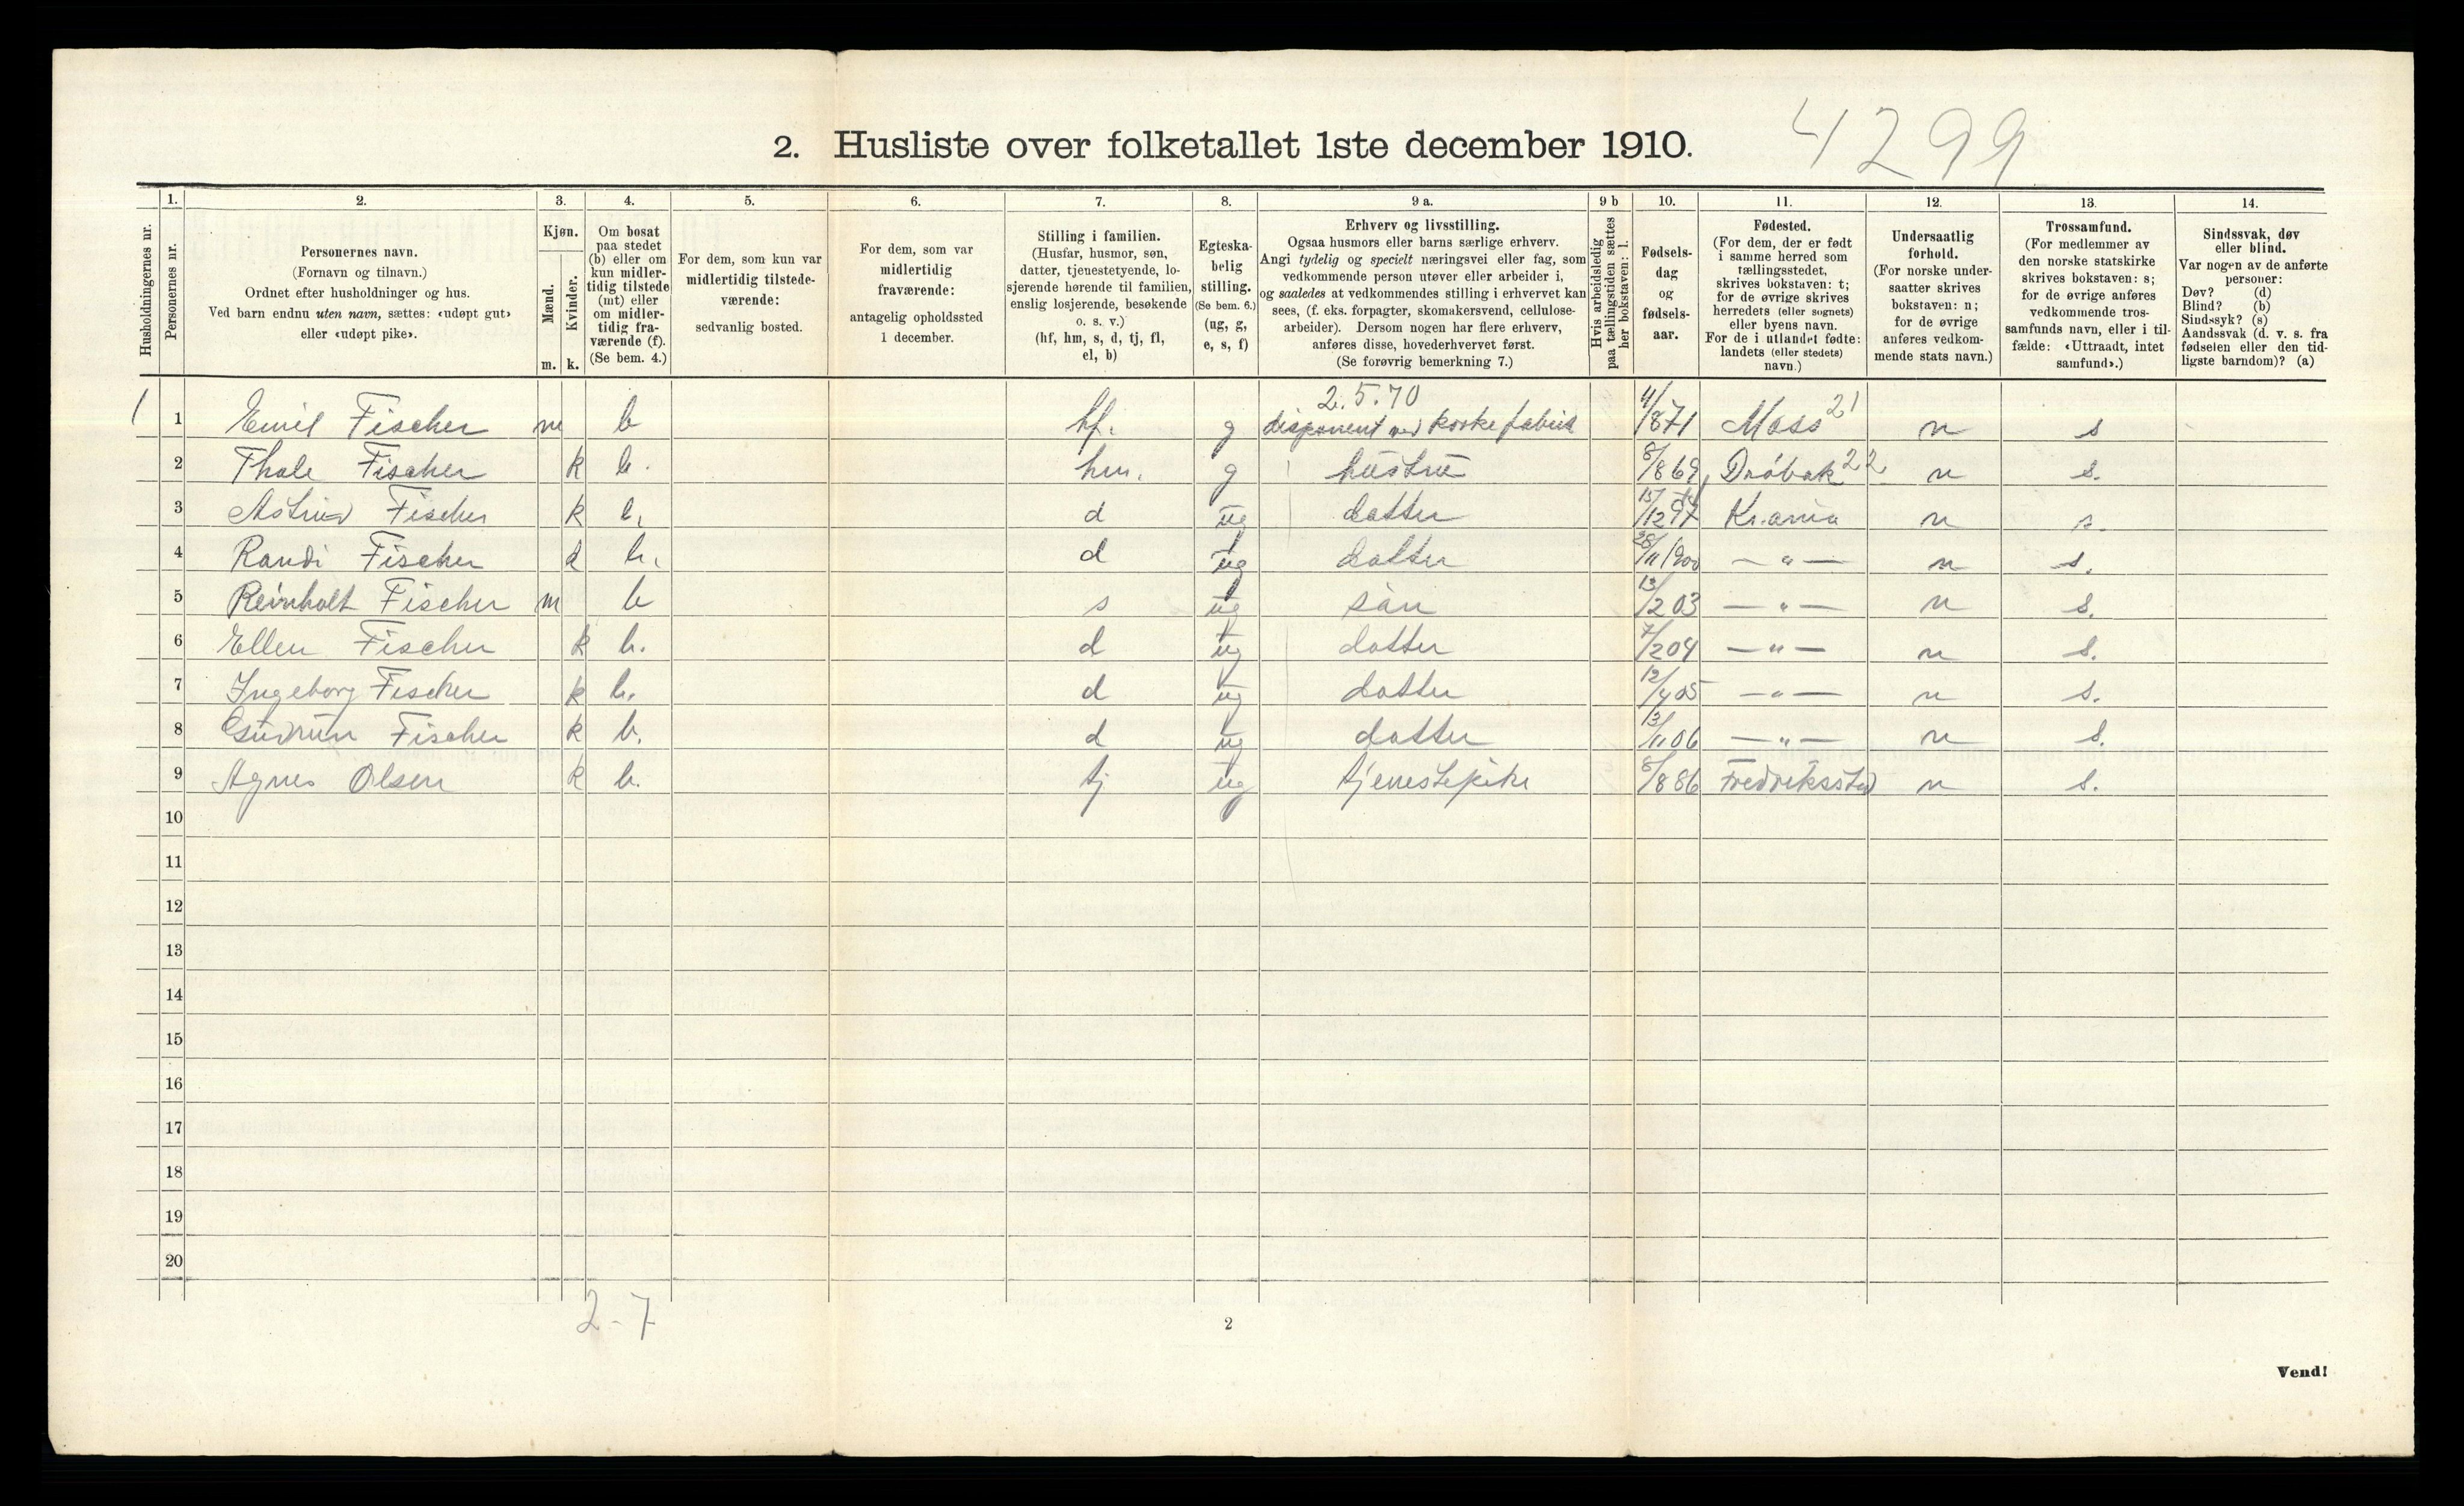 4299
2. Husliste over folketallet 1ste december 1910.
Husholdningernes nr.
1.
Personernes nr.
2.
Personernes navn.
(Fornavn og tilnavn.)
Ordnet efter husholdninger og hus.
Ved barn endnu uten navn, sættes: «udøpt gut»
eller «udøpt pike».
3.
Kjøn.
Mænd.
Kvinder.
m. k.
4.
Om bosat
paa stedet
(b) eller om
kun midler-
tidig tilstede
(mt) eller
om midler-
tidig fra-
værende (f).
(Se bem. 4.)
5.
For dem, som kun var
midlertidig tilstede-
værende:
sedvanlig bosted.
6.
For dem, som var
midlertidig
fraværende:
antagelig opholdssted
1 december.
7.
Stilling i familien.
(Husfar, husmor, søn,
datter, tjenestetyende, lo-
sjerende hørende til familien,
enslig losjerende, besøkende
o. s. v.)
(hf, hm, s, d, tj, fl,
el, b)
8.
Egteska-
belig
stilling.
(Se bem. 6.)
(ug, g,
e, s, f)
9 a.
Erhverv og livsstilling.
Ogsaa husmors eller barns særlige erhverv.
Angi tydelig og specielt næringsvei eller fag, som
vedkommende person utøver eller arbeider i,
og saaledes at vedkommendes stilling i erhvervet kan
sees, (f. eks. forpagter, skomakersvend, cellulose-
arbeider). Dersom nogen har flere erhverv,
anføres disse, hovederhvervet først.
(Se forøvrig bemerkning 7.)
9 b
Hvis arbeidsledig
paa tællingstiden sættes
her bokstaven: l.
10.
Fødsels-
dag
og
fødsels-
aar.
11.
Fødested.
(For dem, der er født
i samme herred som
tællingsstedet,
skrives bokstaven: t;
for de øvrige skrives
herredets (eller sognets)
eller byens navn.
For de i utlandet fødte:
landets (eller stedets)
navn.)
12.
Undersaatlig
forhold.
(For norske under-
saatter skrives
bokstaven: n;
for de øvrige
anføres vedkom-
mende stats navn.)
13.
Trossamfund.
(For medlemmer av
den norske statskirke
skrives bokstaven: s;
for de øvrige anføres
vedkommende tros-
samfunds navn, eller i til-
fælde: «Uttraadt, intet
samfund».)
14.
Sindssvak, døv
eller blind.
Var nogen av de anførte
personer:
Døv? (d)
Blind? (b)
Sindssyk? (s)
Aandssvak (d. v. s. fra
fødselen eller den tid-
ligste barndom)? (a)
2.5.70
1 1 Emil Fischer m b hf. g disponent ved korkefabrik 4/871 Moss 21 n s
2 Thale Fischer k b. hm. g hustru 8/869 Drøbak 22 n s.
3 Astrid Fischer k b. d ug datter 15/12 97 Kr.ania n s.
4 Randi Fischer k b. d ug datter 28/11 1900 — " — n s.
5 Reinholt Fischer m b s ug søn 13/2 03 — " — n s.
6 Ellen Fischer k b. d ug datter 7/2 04 — " — n s.
7 Ingeborg Fischer k b. d ug datter 12/4 05 — " — n s.
8 Gudrun Fischer k b. d ug datter 13/11 06 — " — n s.
9 Agnes Olsen k b. tj ug tjenestepike 8/8 86 Fredriksstad n s.
10
11
12
13
14
15
16
17
18
19
20
2-7
2
Vend!